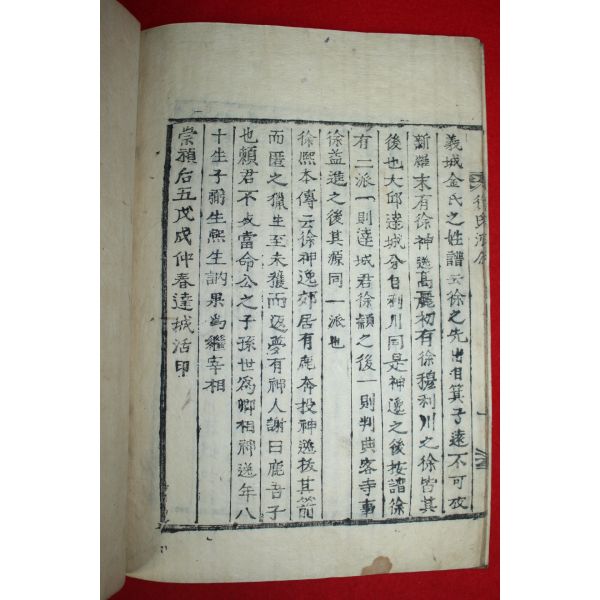 義城金氏之姓譜云徐之先出自箕子遠不可攷
新羅末有徐神逸高麗初有徐穆利川之徐皆其
後也大邱達城分自利川同是神逸之後按譜徐
有二派一則達城君徐顗之後一則判典客寺事
徐益進之後其源同一派也
徐熙本傳云徐神逸郊居有鹿奔投神逸拔其箭
而匿之獵生至未獲而返夢有神人謝曰鹿吾子
也賴君不死當命公之子孫世爲卿相神逸年八
十生子弼生熙生訥果爲繼宰相
崇禎后五戊戌仲春達城活印